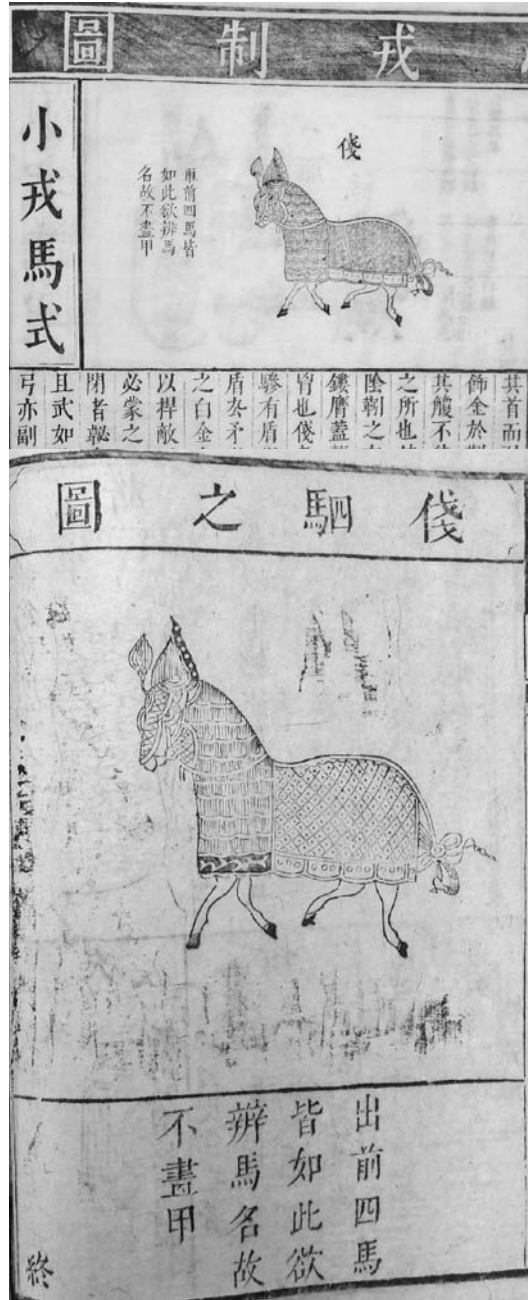 戎制圖
小戎馬式
俴
車前四馬皆
如此欲辨馬
名故不畫甲
其首而
飾金於
其觼不
之所也
陰靷之
鏤膺蓋
皆也俴
驂有盾
盾厹矛
之白金
以捍敵
必蒙之
閉者
且武如
弓亦副
俴駟之圖
出前四馬
皆如此欲
辨馬名故
不畫甲
終